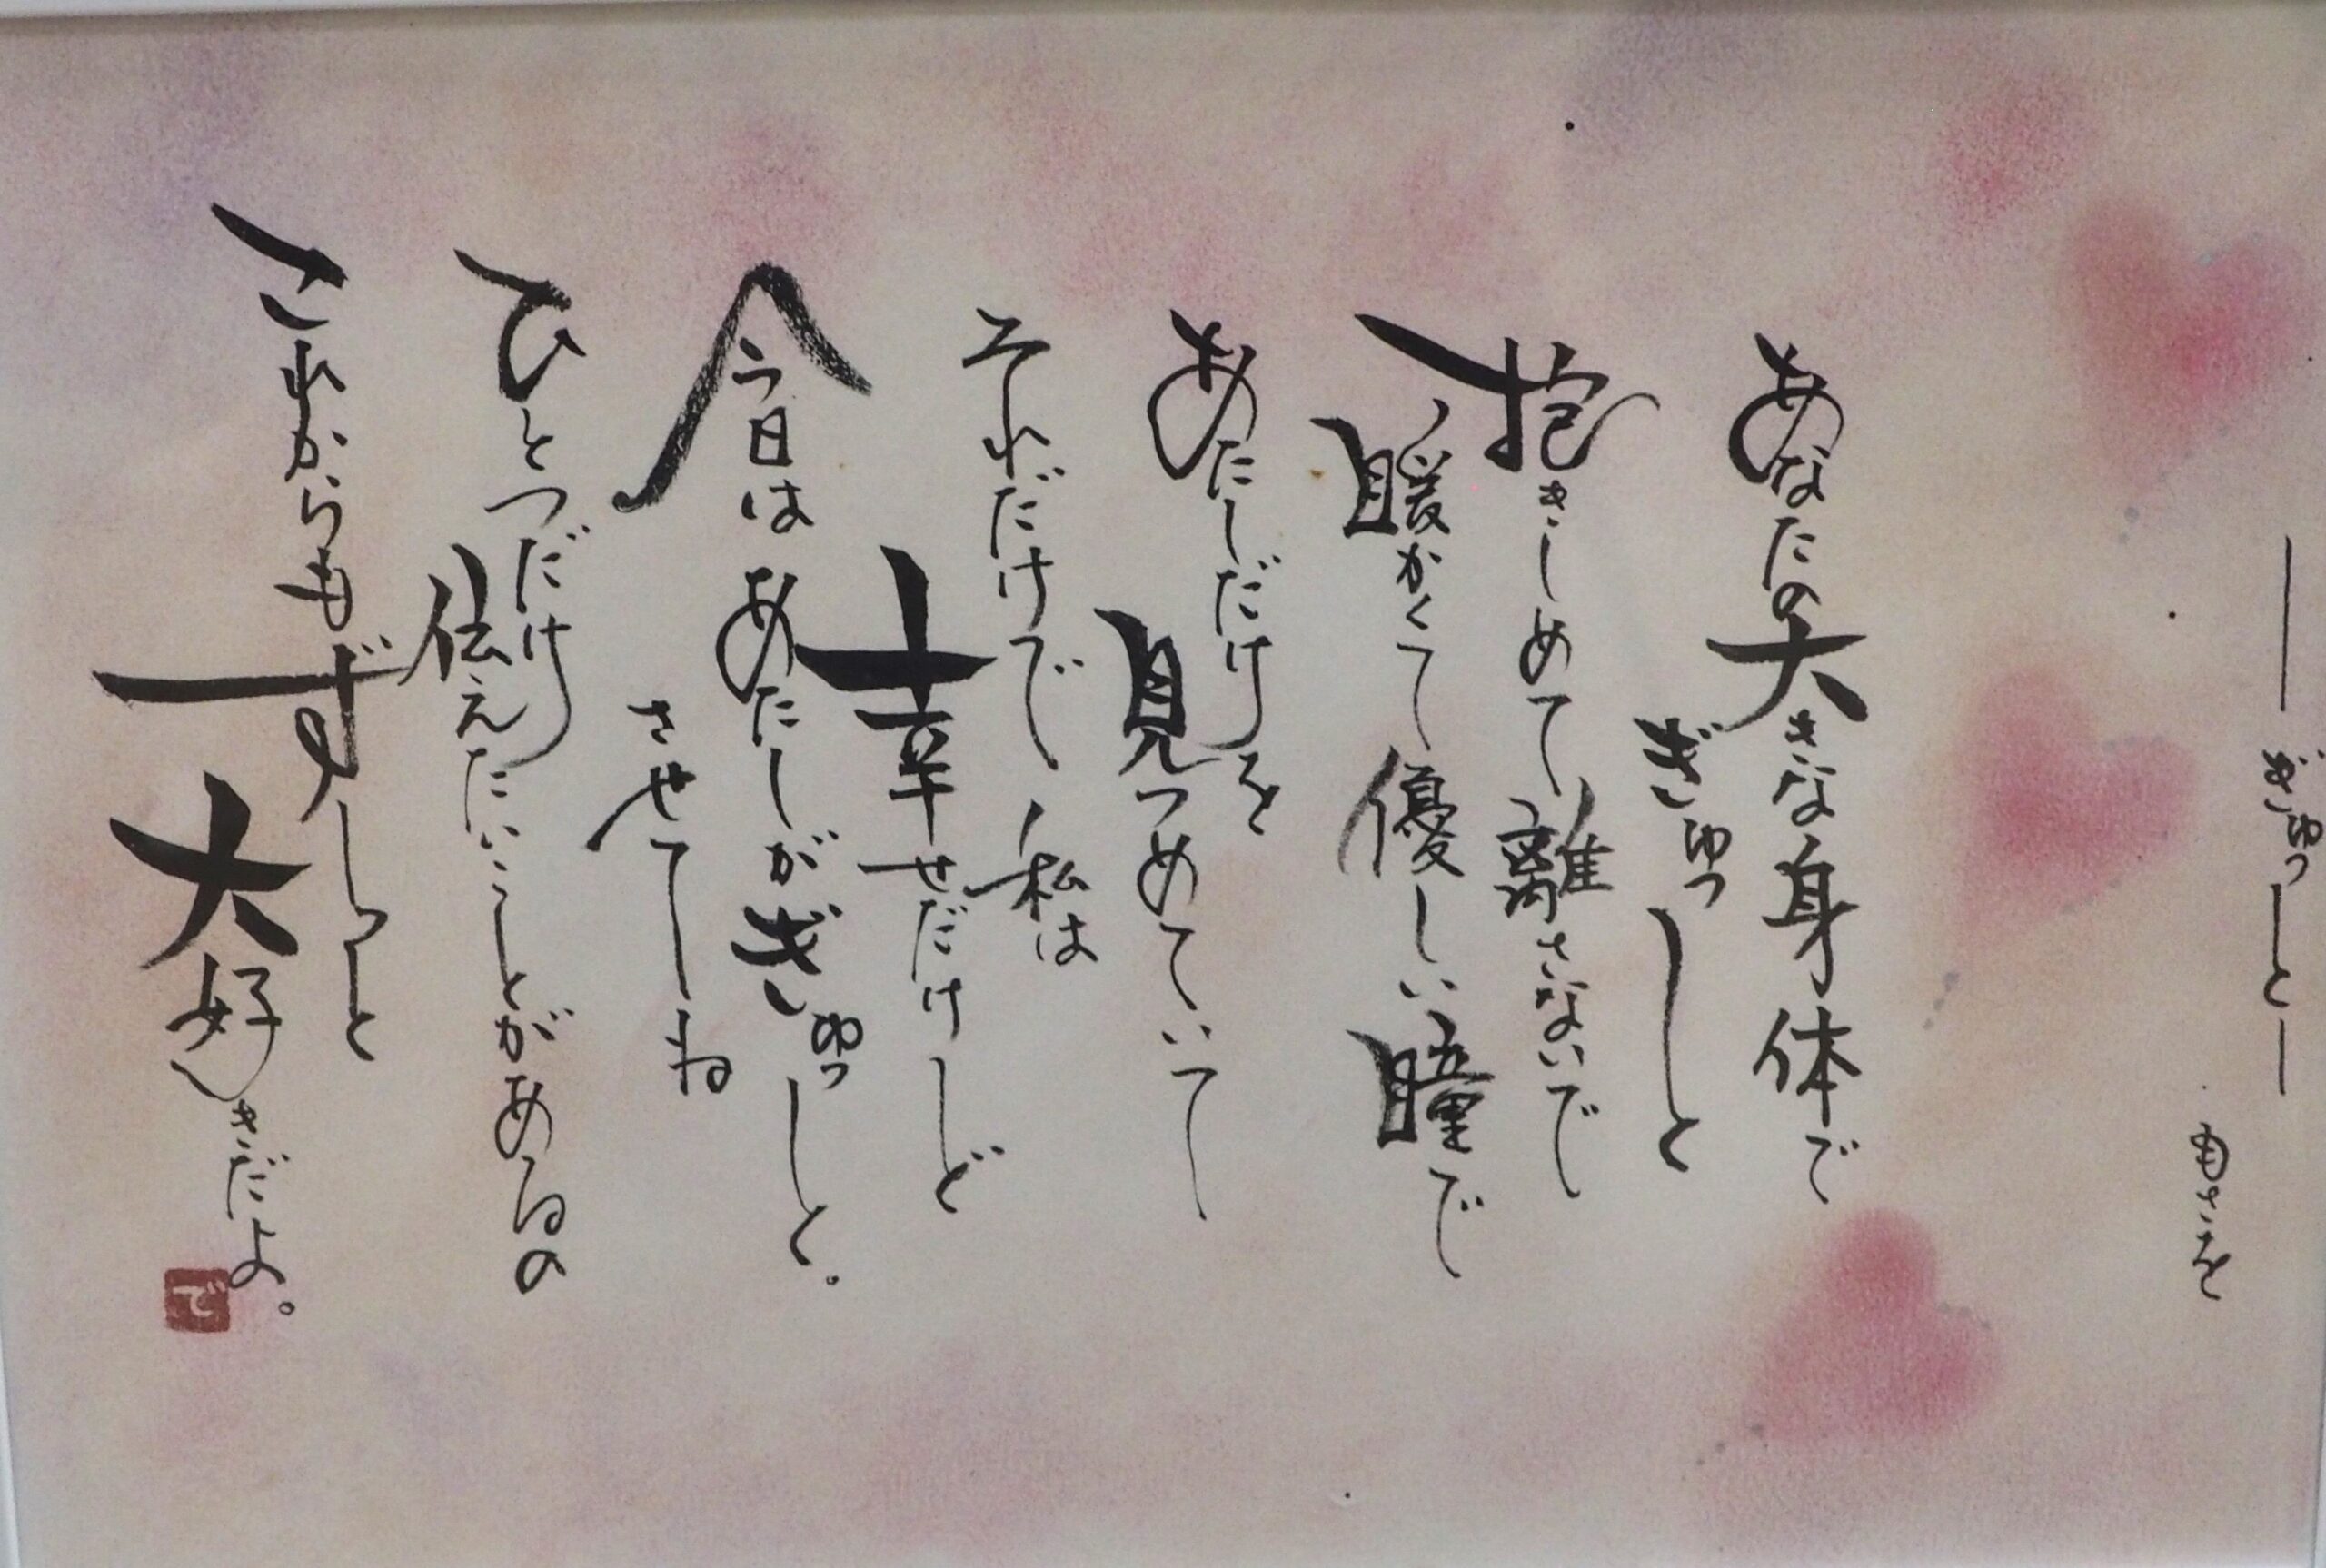 ―ぎゅっーと―
もさを
あなたの大きな身体で
ぎゅっーと
抱きしめて離さないで
暖かくて優しい瞳で
あたしだけを
見つめていてー
それだけで私は
幸せだけーど
今日はあたしがぎゅっーと。
させてーね
ひとつだけ
伝えたいことがあるの
これからもずーっと
大好きだよ。
で